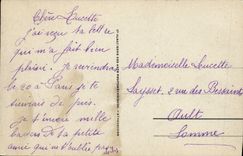 Chère Lucette
j'ai reçu ta lettre
qui m'a fait bien
plaisir. Je reviendrai
le 20 à Paris je te
suivrai de près.
Je t'envoie mille
baisers de ta petite
amie qui ne t'oublie pas
Mademoiselle Lucette
Laysset, 2 rue des
Ault
Somme